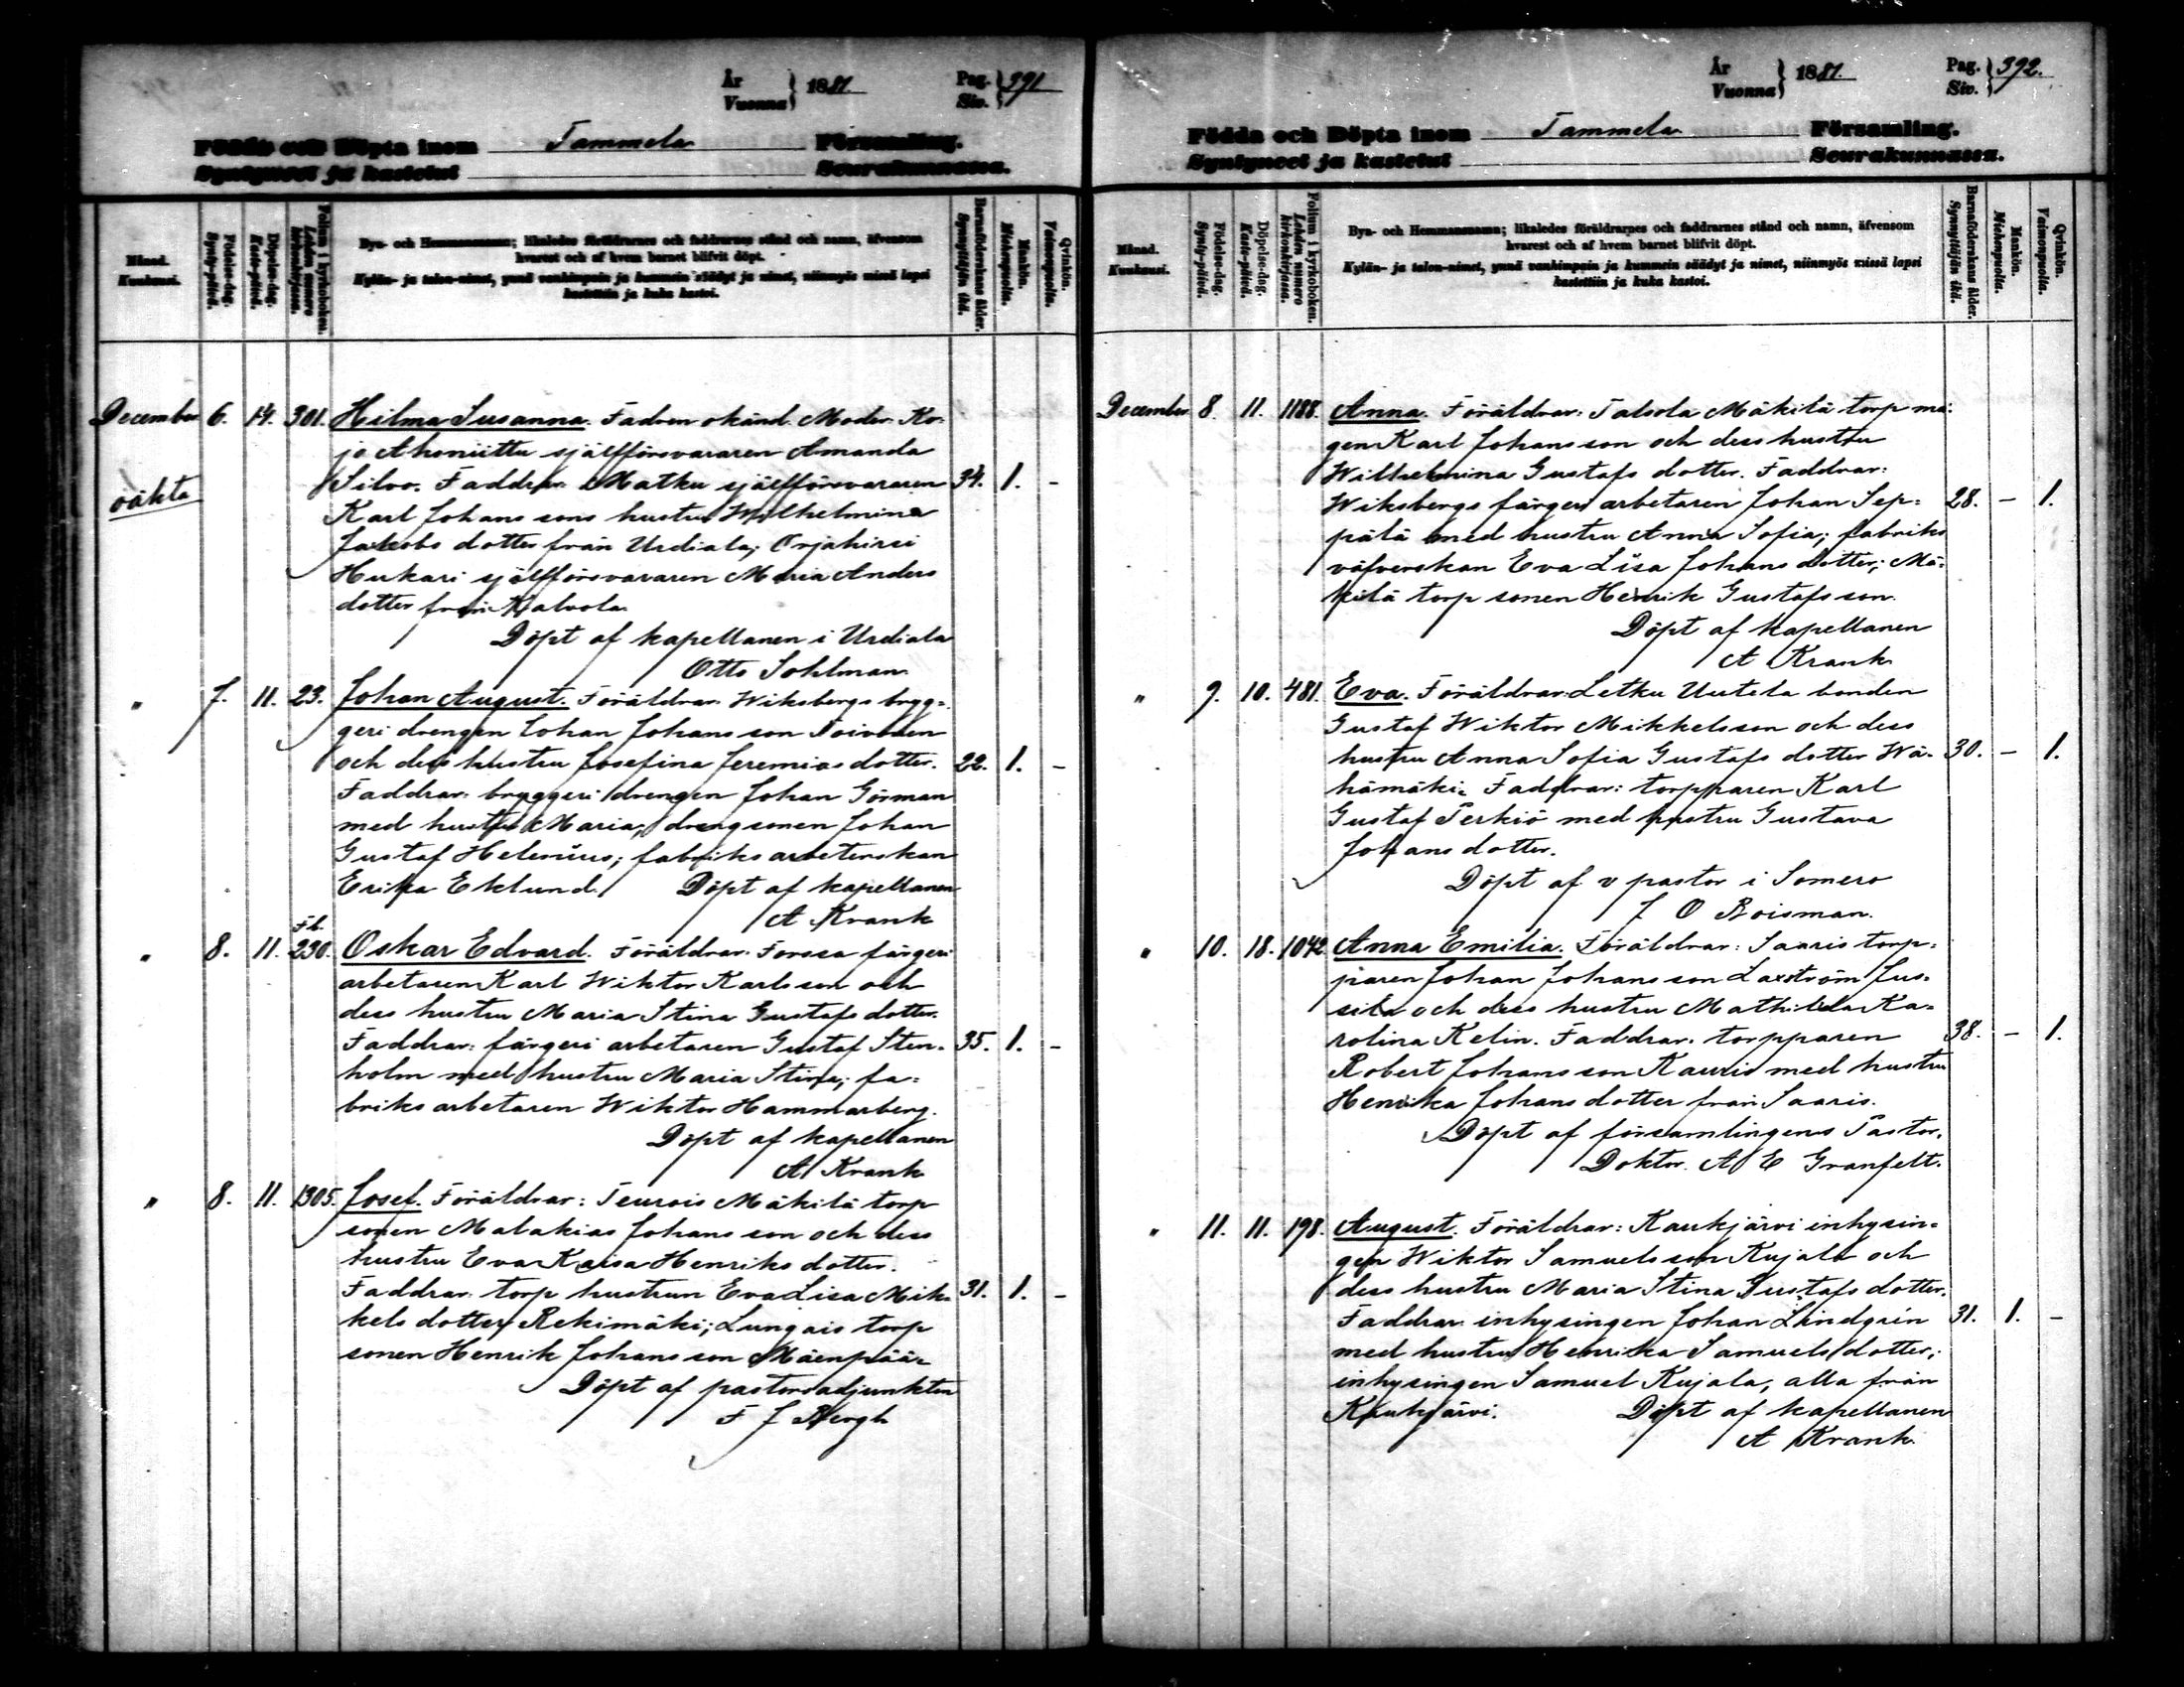 År
Vuonna } 1881. Pag.
Siv. } 391
Födda och Döpta inom Tammela Församling.
Syntyneet ja kastetut Seurakunnassa.
Månad.
Kuukausi.
Födelse-dag.
Synty-päivä.
Döpelse-dag.
Kaste-päivä.
Folium i kyrkoboken.
Lehden numero kirkonkirjassa.
Byn- och Hemmansnamn; likaledes föräldrarnes och faddrarnes stånd och namn, äfvensom
hvarest och af hvem barnet blifvit döpt.
Kylän- ja talon-nimet, ynnä vanhimpain ja kummein säädyt ja nimet, niinmyös missä lapsi
kastettiin ja kuka kastoi.
Barnaföderskans ålder.
Synnyttäjän ikä.
Mankön.
Miehenpuolia.
Qvinkön.
Vaimonpuolia.
December 6. 14. 301. Hilma Susanna. Fadren okänd. Moder: Ko-
jo Ahoniittu självförsvararen Amanda
oäkta Silvo. Faddrar: Matku självförsvararen 34. 1. -
Karl Johanssons hustru Wilhelmina
Jakobs dotter från Urdiala; Orjahirsi
Hukari självförsvararen Maria Anders
dotter från Kalvola.
Döpt af kapellanen i Urdiala
Otto Sohlman.
" 7. 11. 23. Johan August. Föräldrar: Wiksbergs brygg=
geri drengen Johan Johansson Toivonen
och dess hustru Josefina Jeremias dotter. 22. 1. -
Faddrar: bryggeri drengen Johan Görman
med hustru Maria, drengsonen Johan
Gustaf Helenius; fabriks arbeterskan
Erika Eklund. Döpt af kapellanen
A Krank
" 8. 11. Fb. 230. Oskar Edvard. Föräldrar: Forssa färgeri
arbetaren Karl Wiktor Karlsson och
dess hustru Maria Stina Gustafs dotter.
Faddrar: färgeri arbetaren Gustaf Sten- 35. 1. -
holm med hustru Maria Stina; fa=
briks arbetaren Wiktor Hammarberg.
Döpt af kapellanen
A Krank
" 8. 11. 1305. Josef. Föräldrar: Teurois Mäkilä torp
sonen Malakias Johansson och dess
hustru Eva Kaisa Henriks dotter.
Faddrar: torp hustrun Eva Lisa Mik- 31. 1. -
kels dotter Rekimäki; Lungais torp
sonen Henrik Johansson Mäenpää-
Döpt af pastorsadjunkten
F J Bergh
År
Vuonna } 1881. Pag.
Siv. } 392.
Födda och Döpta inom Tammela Församling.
Syntyneet ja kastetut Seurakunnassa.
Månad.
Kuukausi.
Födelse-dag.
Synty-päivä.
Döpelse-dag.
Kaste-päivä.
Folium i kyrkoboken.
Lehden numero kirkonkirjassa.
Byn- och Hemmansnamn; likaledes föräldrarpes och faddrarnes stånd och namn, äfvensom
hvarest och af hvem barnet blifvit döpt.
Kylän- ja talon-nimet, ynnä vanhimpain ja kummein säädyt ja nimet, niinmyös missä lapsi
kastettiin ja kuka kastoi.
Barnaföderskans ålder.
Synnyttäjän ikä.
Mankön.
Miehenpuolia.
Qvinkön.
Vaimonpuolia.
December 8. 11. 1188. Anna. Föräldrar: Talsola Mäkilä torp må-
gen Karl Johansson och dess hustru
Wilhelmina Gustafs dotter. Faddrar:
Wiksbergs färgeri arbetaren Johan Sep= 28. - 1.
pälä med hustru Anna Sofia; fabriks
väfverskan Eva Lisa Johans dotter; Mä-
kilä torp sonen Henrik Gustafsson.
Döpt af kapellanen
A Krank
" 9. 10. 481. Eva. Föräldrar: Letku Uutela bonden
Gustaf Wiktor Mikkelsson och dess
hustru Anna Sofia Gustafs dotter Wä- 30. - 1.
hämäki. Faddrar: torpparen Karl
Gustaf Perkiö med hustru Gustava
Johans dotter.
Döpt af v pastor i Somero
J O Roisman.
" 10. 18. 1042 Anna Emilia. Föräldrar: Saaris torp=
paren Johan Johansson Laxström Jus-
sila och dess hustru Mathilda Ka=
rolina Kelin. Faddrar: torpparen 38. - 1.
Robert Johansson Kauris med hustru
Henrika Johans dotter från Saaris.
Döpt af församlingens Pastor,
Doktor. A E Granfelt.
" 11. 11. 198. August. Föräldrar: Kaukjärvi inhysin=
gen Wiktor Samuelsson Kujala och
dess hustru Maria Stina Gustafs dotter.
Faddrar: inhysingen Johan Lindgrén 31. 1. -
med hustru Henrika Samuels dotter;
inhysingen Samuel Kujala, alla från
Kaukjärvi. Döpt af kapellanen
A Krank.